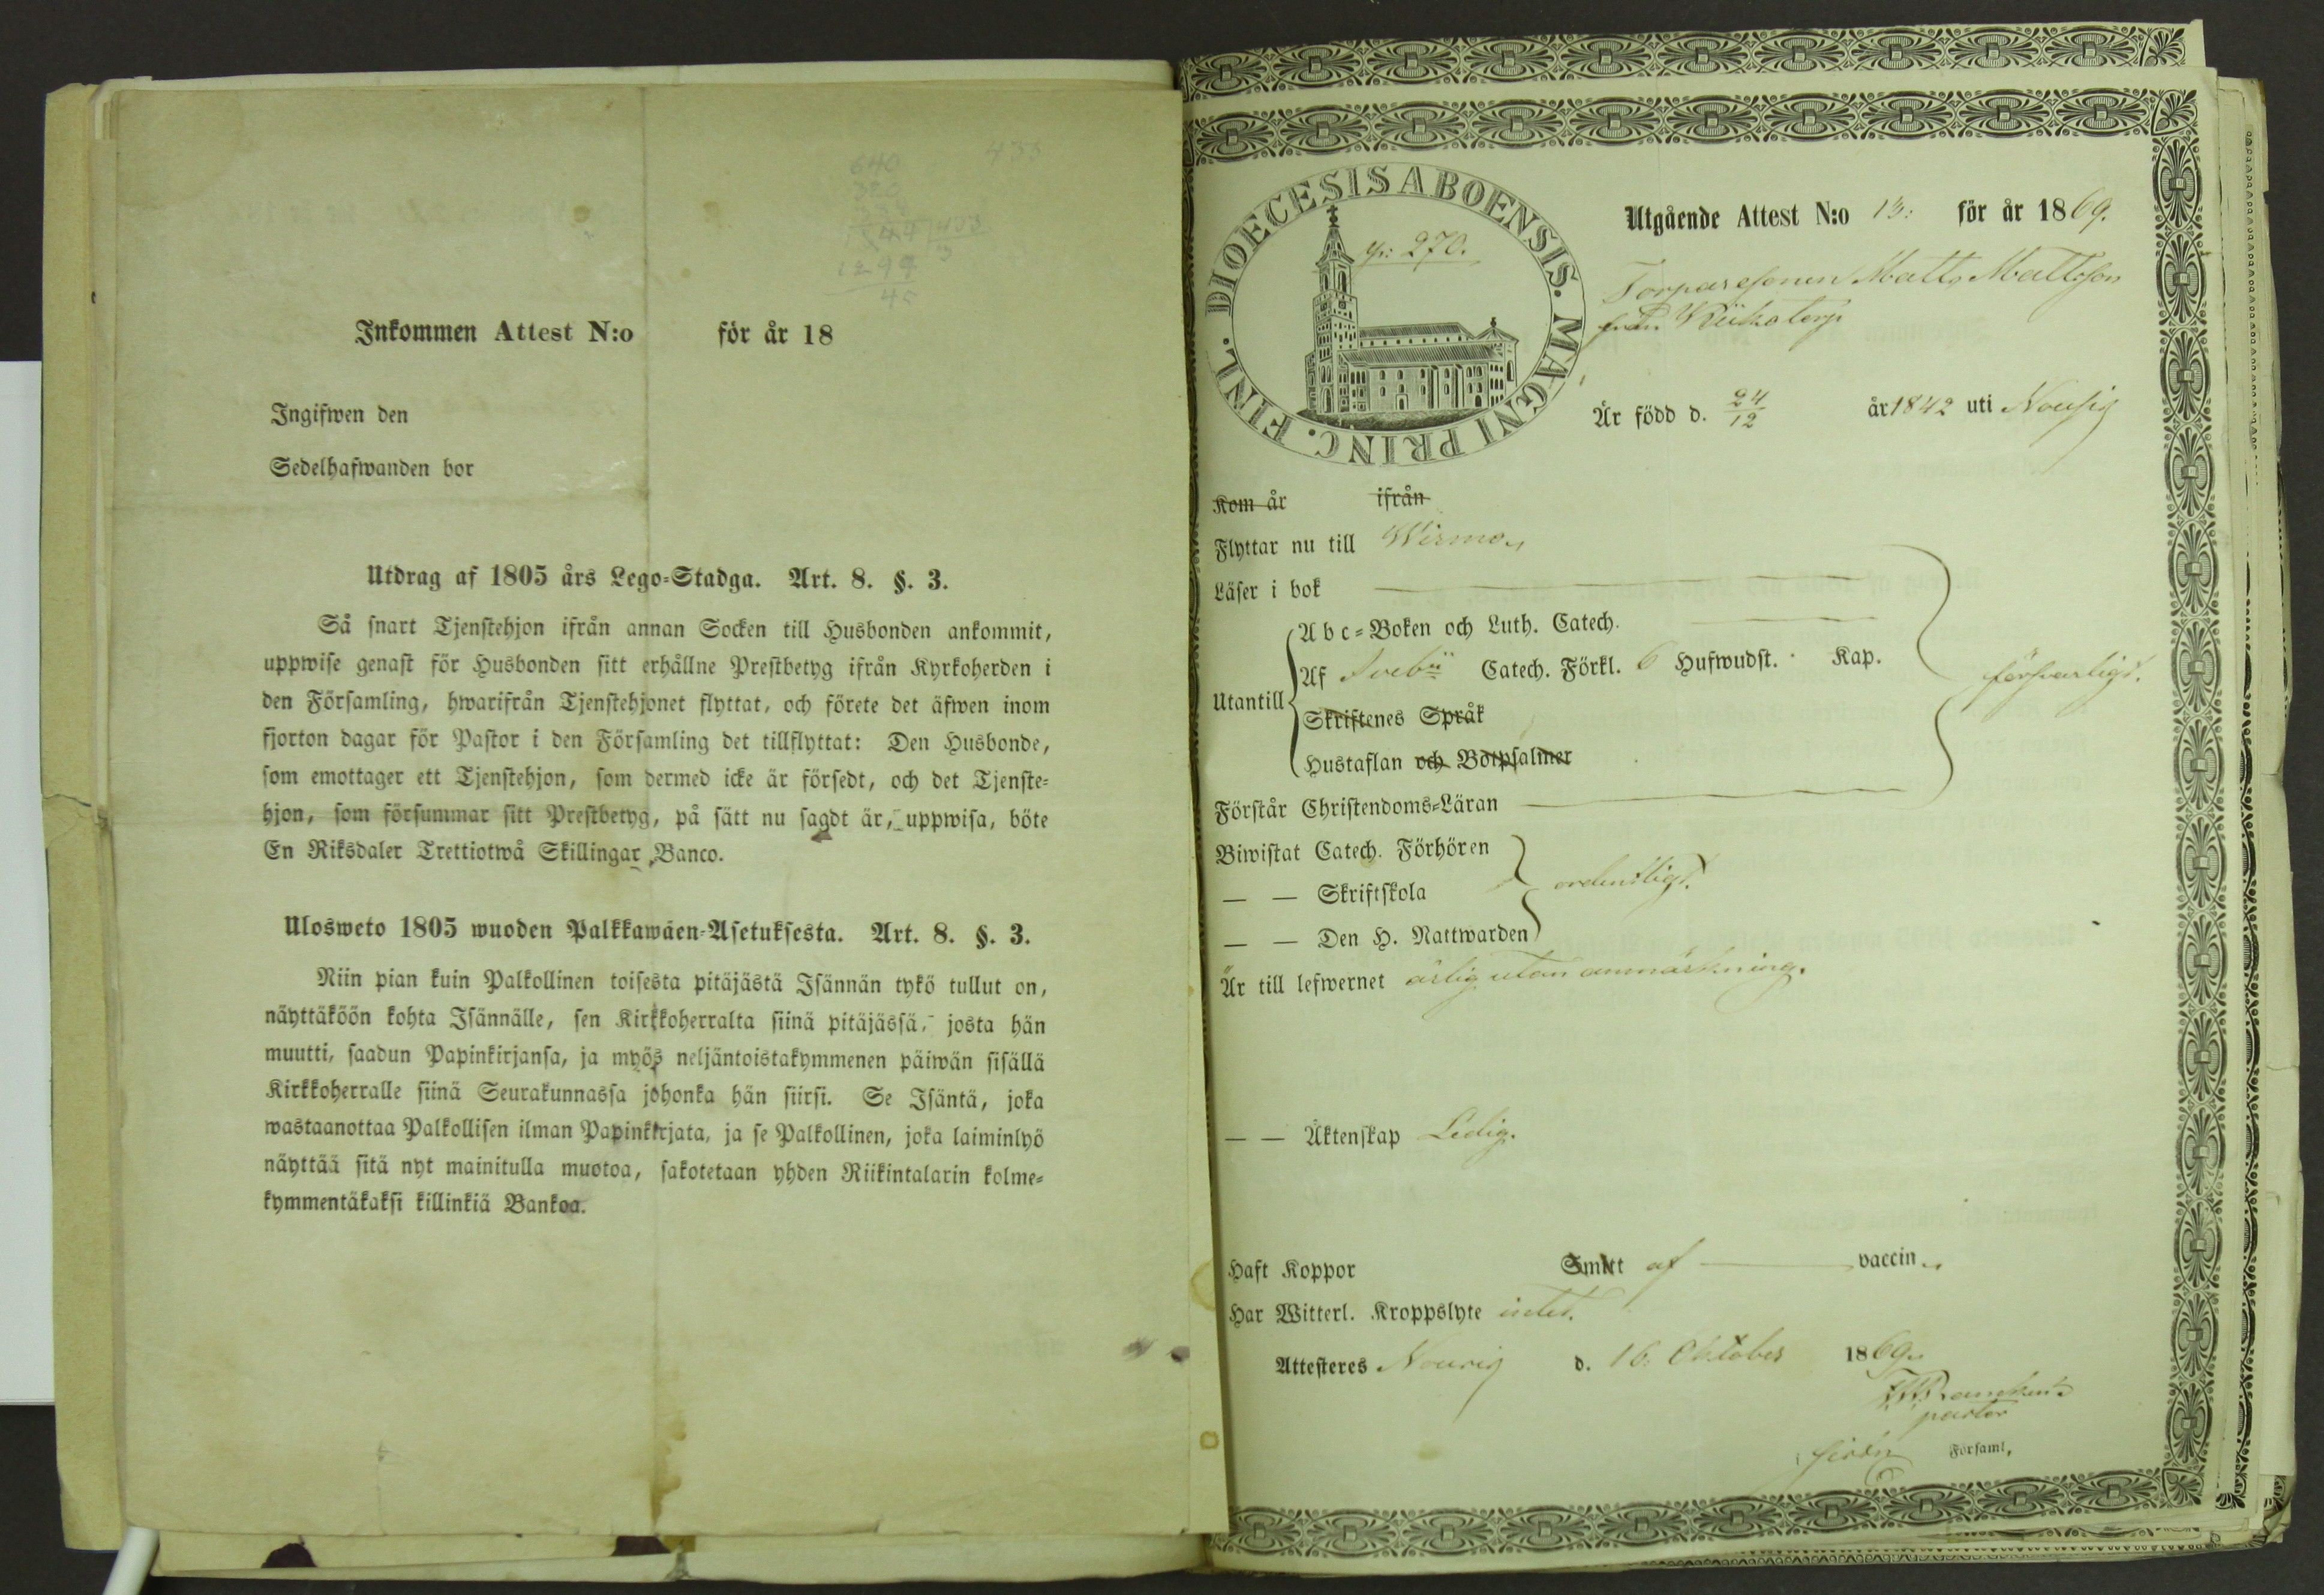 640
433
1299
45
Inkommen Attest N:o för år 18
Ingifwen den
Sedelhafwanden bor
Utdrag af 1805 års Lego-Stadga. Art. 8. §. 3.
Så snart Tjenstehjon ifrån annan Socken till Husbonden ankommit,
uppwise genast för Husbonden sitt erhållne Prestbetyg ifrån Kyrkoherden i
den Församling, hwarifrån Tjenstehjonet flyttat, och förete det äfwen inom
fjorton dagar för Pastor i den Församling det tillflyttat: Den Husbonde,
som emottager ett Tjenstehjon, som dermed icke är försedt, och det Tjenste-
hjon, som försummar sitt Prestbetyg, på sätt nu sagdt är, uppwisa, böte
En Riksdaler Trettiotwå Skillingar Banco.
Ulosweto 1805 wuoden Palkkawäen-Asetuksesta. Art. 8. §. 3.
Niin pian kuin Palkollinen toisesta pitäjästä Isännän tykö tullut on,
näyttäköön kohta Isännälle, sen Kirkkoherralta siinä pitäjässä, josta hän
muutti, saadun Papinkirjansa, ja myös neljäntoistakymmenen päiwän sisällä
Kirkkoherralle siinä Seurakunnassa johonka hän siirsi. Se Isäntä, joka
wastaanottaa Palkollisen ilman Papinkirjata, ja se Palkollinen, joka laiminlyö
näyttää sitä nyt mainitulla muotoa, sakotetaan yhden Riikintalarin kolme-
kymmentäkaksi killinkiä Bankoa.
DIOECESIS ABOENSIS. MAGNI PRINC. FINL.
270.
Utgående Attest N:o 13: för år 1869.
Torparesonen Matts Mattsson
från
Är född d. 24/12 år 1842 uti Nousis
Kom år ifrån
Flyttar nu till Wirmo
Läser i bok
Utantill
Abc-Boken och Luth. Catech.
Af Svebii Catech. Förkl. 6 Hufwudst. Kap.
försvarligt.
Skriftenes Språk
Hustaflan och Botpsalmer
Förstår Christendoms-Läran
Biwistat Catech. Förhören
— — Skriftskola
ordentligt.
— — Den H. Nattwarden
Är till lefwernet ärlig utan anmärkning.
— — Äktenskap Ledig.
Haft Koppor Smitt af vaccin
Har Witterl. Kroppslyte intet.
Attesteres Nousis d. 16. Oktober 1869
pastor
Församl.